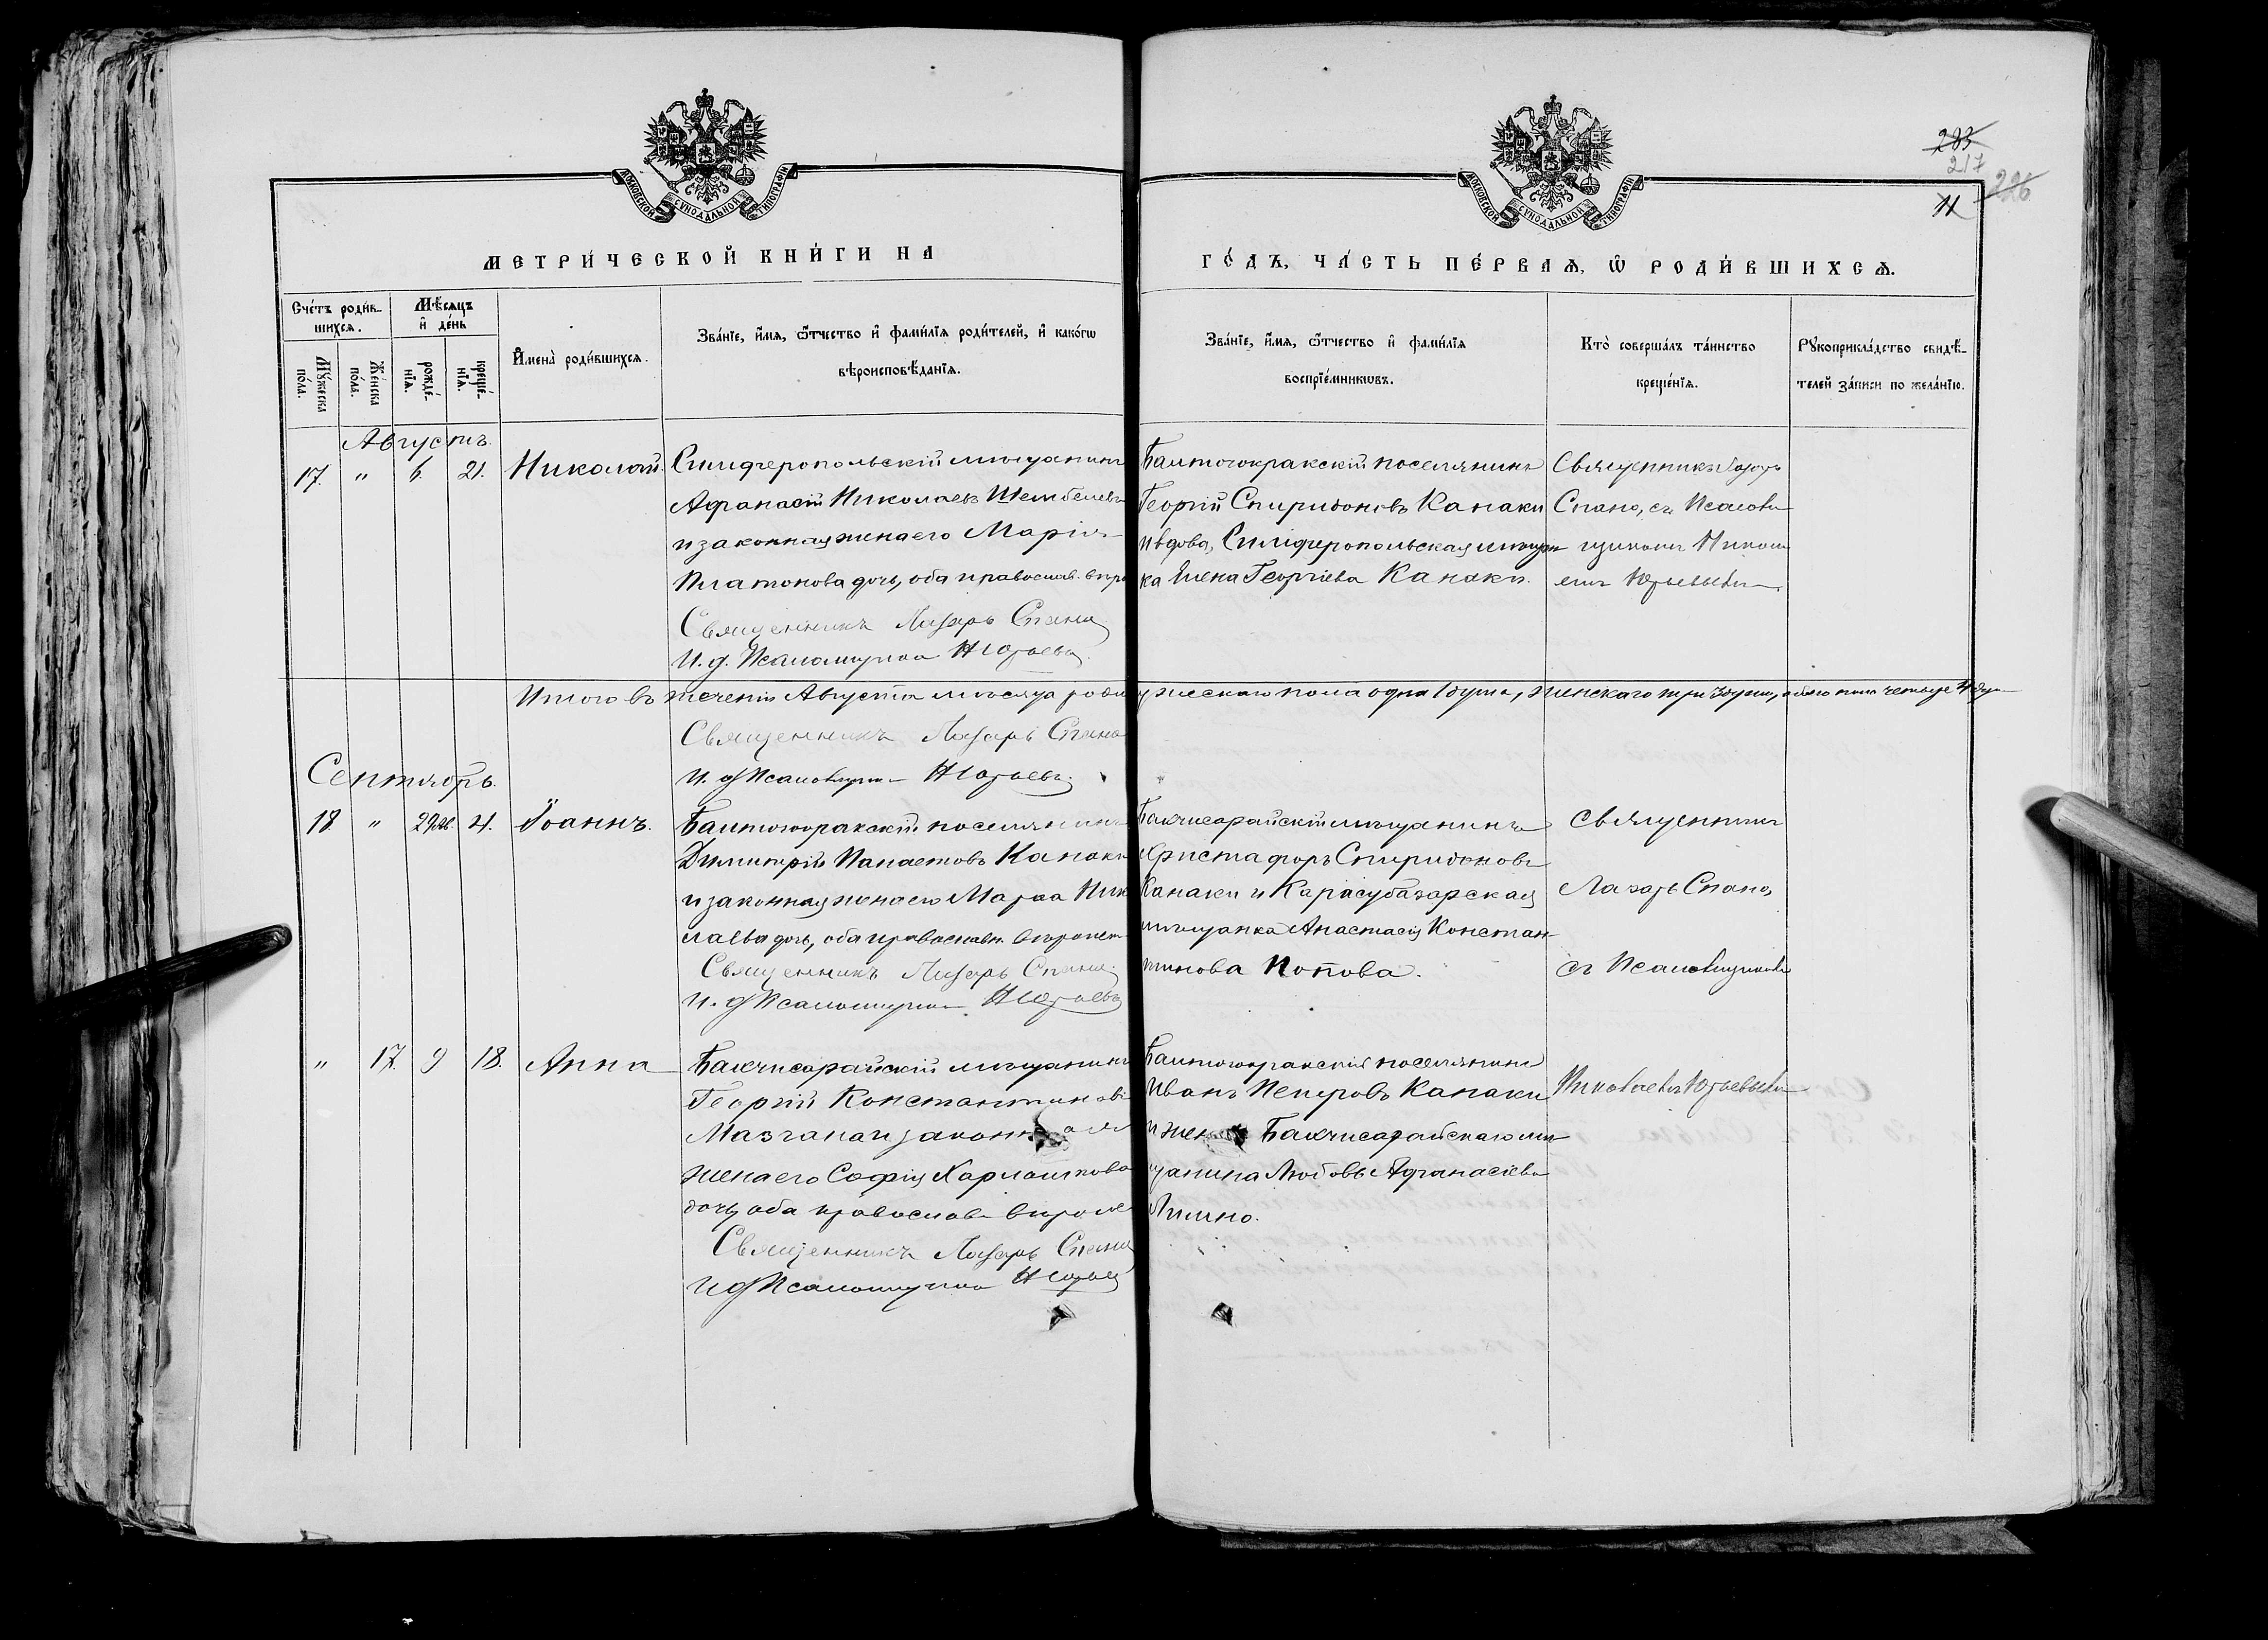 283
217
226
11
МОСКОВСКОЙ СѴНОДАЛЬНОЙ ТИПОГРАФІИ
МОСКОВСКОЙ СѴНОДАЛЬНОЙ ТИПОГРАФІИ
МЕТРИ́ЧЕСКОЙ КНИ́ГИ НА
ГО́ДЪ, ЧА́СТЬ ПЕ́РВАѦ, Ѡ҆ РОДИ́ВШИХСѦ.
Сче́тъ роди́в-
шихсѧ.
Мѣ́сѧцъ
и҆ де́нь
Мꙋ́жеска
по́ла.
Же́нска
по́ла.
рожде́-
нїѧ.
креще́-
нїѧ.
И҆мена̀ роди́вшихсѧ.
Зва́нїе, и҆́мѧ, ѻ҆́тчество и҆ фами́лїѧ роди́телей, и҆ како́гѡ
вѣроисповѣ́данїѧ.
Зва́нїе, и҆́мѧ, ѻ҆́тчество и҆ фами́лїѧ
воспрїе́мникѡвъ.
Кто̀ соверша́лъ та́инство
креще́нїѧ.
Рꙋкоприкла́дство свидѣ́-
телей за́писи по жела́нїю.
Августъ.
17. " 6. 21. Николай.
Симферопольскій мѣщанинъ
Афанасій Николаевъ Шембелевъ
и законная жена его Марія
Платонова дочь, оба православ. вѣро
Священникъ Лазарь Спано
И. д. Псаломщика Н Юрьевъ
Баитогокракскій поселянинъ
Георгій Спиридоновъ Канаки
и вдова, Симферопольская мѣщан
ка Елена Георгіева Канаки.
Священникъ Лазарь
Спано, съ Псалом
щикомъ Никола
емъ Юрьевымъ.
Итого въ теченіи Августа мѣсяца роди ужескаго пола одна 1 душа, женскаго три 3 души, обоего пола четыре 4 душ
Священникъ Лазарь Спано
И. д. Псаломщика Н Юрьевъ
Сентябрь.
18. " 29 Ав. 4. Іоаннъ.
Баитогокракскій поселянинъ
Димитрій Панаетовъ Канаки
и законная жена его Марѳа Нико
лаева дочь, оба православн. вѣроисп
Священникъ Лазарь Спано
И. д Псаломщика Н Юрьевъ
Бахчисарайскій мѣщанинъ
Христафоръ Спиридоновъ
Канаки и Карасубазарская
мѣщанка Анастасія Констан
тинова Попова.
Священникъ
Лазарь Спано,
съ Псаломщикомъ
" 17. 9 18. Анна
Бахчисарайскій мѣщанинъ
Георгій Константиновъ
Мазгана и законная
жена его Софія Харлампова
дочь, оба православ. вѣроис
Священникъ Лазарь Спано
И д Псаломщика Н Юрьевъ
Баитогокракскій поселянинъ
Иванъ Петровъ Канаки
и жена Бахчисарайскаго мѣ
щанина Любовь Афанасіева
Лимно.
Николаемъ Юрьевымъ